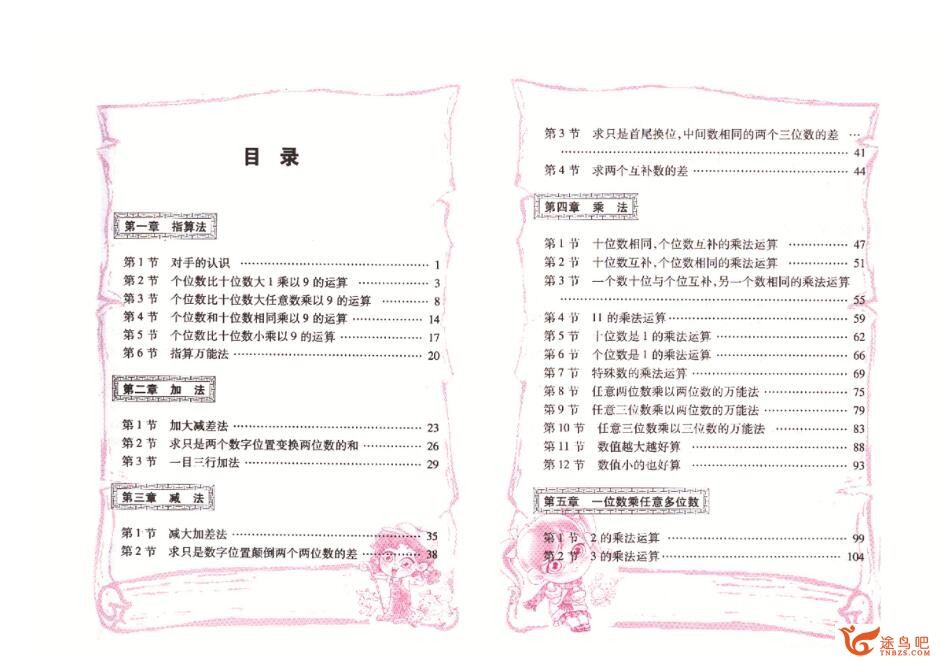 目 录
第一章 指算法
第1节 对手的认识 …… 1
第2节 个位数比十位数大1乘以9的运算 …… 3
第3节 个位数比十位数大任意数乘以9的运算 …… 8
第4节 个位数和十位数相同乘以9的运算 …… 14
第5节 个位数比十位数小乘以9的运算 …… 17
第6节 指算万能法 …… 20
第二章 加 法
第1节 加大减差法 …… 23
第2节 求只是两个数字位置变换两位数的和 …… 26
第3节 一目三行加法 …… 29
第三章 减 法
第1节 减大加差法 …… 35
第2节 求只是数字位置颠倒两个两位数的差 …… 38
第3节 求只是首尾换位,中间数相同的两个三位数的差 …
…… 41
第4节 求两个互补数的差 …… 44
第四章 乘 法
第1节 十位数相同,个位数互补的乘法运算 …… 47
第2节 十位数互补,个位数相同的乘法运算 …… 51
第3节 一个数十位与个位互补,另一个数相同的乘法运算
…… 55
第4节 11的乘法运算 …… 59
第5节 十位数是1的乘法运算 …… 62
第6节 个位数是1的乘法运算 …… 66
第7节 特殊数的乘法运算 …… 69
第8节 任意两位数乘以两位数的万能法 …… 75
第9节 任意三位数乘以两位数的万能法 …… 79
第10节 任意三位数乘以三位数的万能法 …… 83
第11节 数值越大越好算 …… 88
第12节 数值小的也好算 …… 93
第五章 一位数乘任意多位数
第1节 2的乘法运算 …… 99
第2节 3的乘法运算 …… 104
途鸟吧
TNBZS.COM